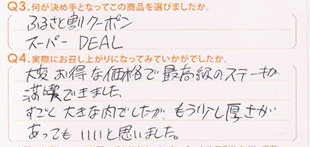 Q3.何が決め手となってこの商品を選びましたか。
ふるさと割クーポン
スーパーDEAL
Q4.実際にお召し上がりになってみていかがでしたか。
大変お得な価格で最高級のステーキが
満喫できました。
すごく大きな肉でしたが、もう少し厚さが
あってもいいと思いました。